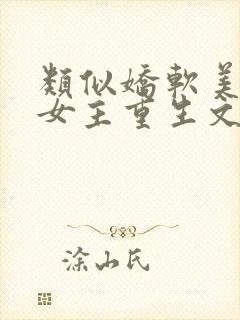 類似嬌軟美
女主重生文
涂山氏